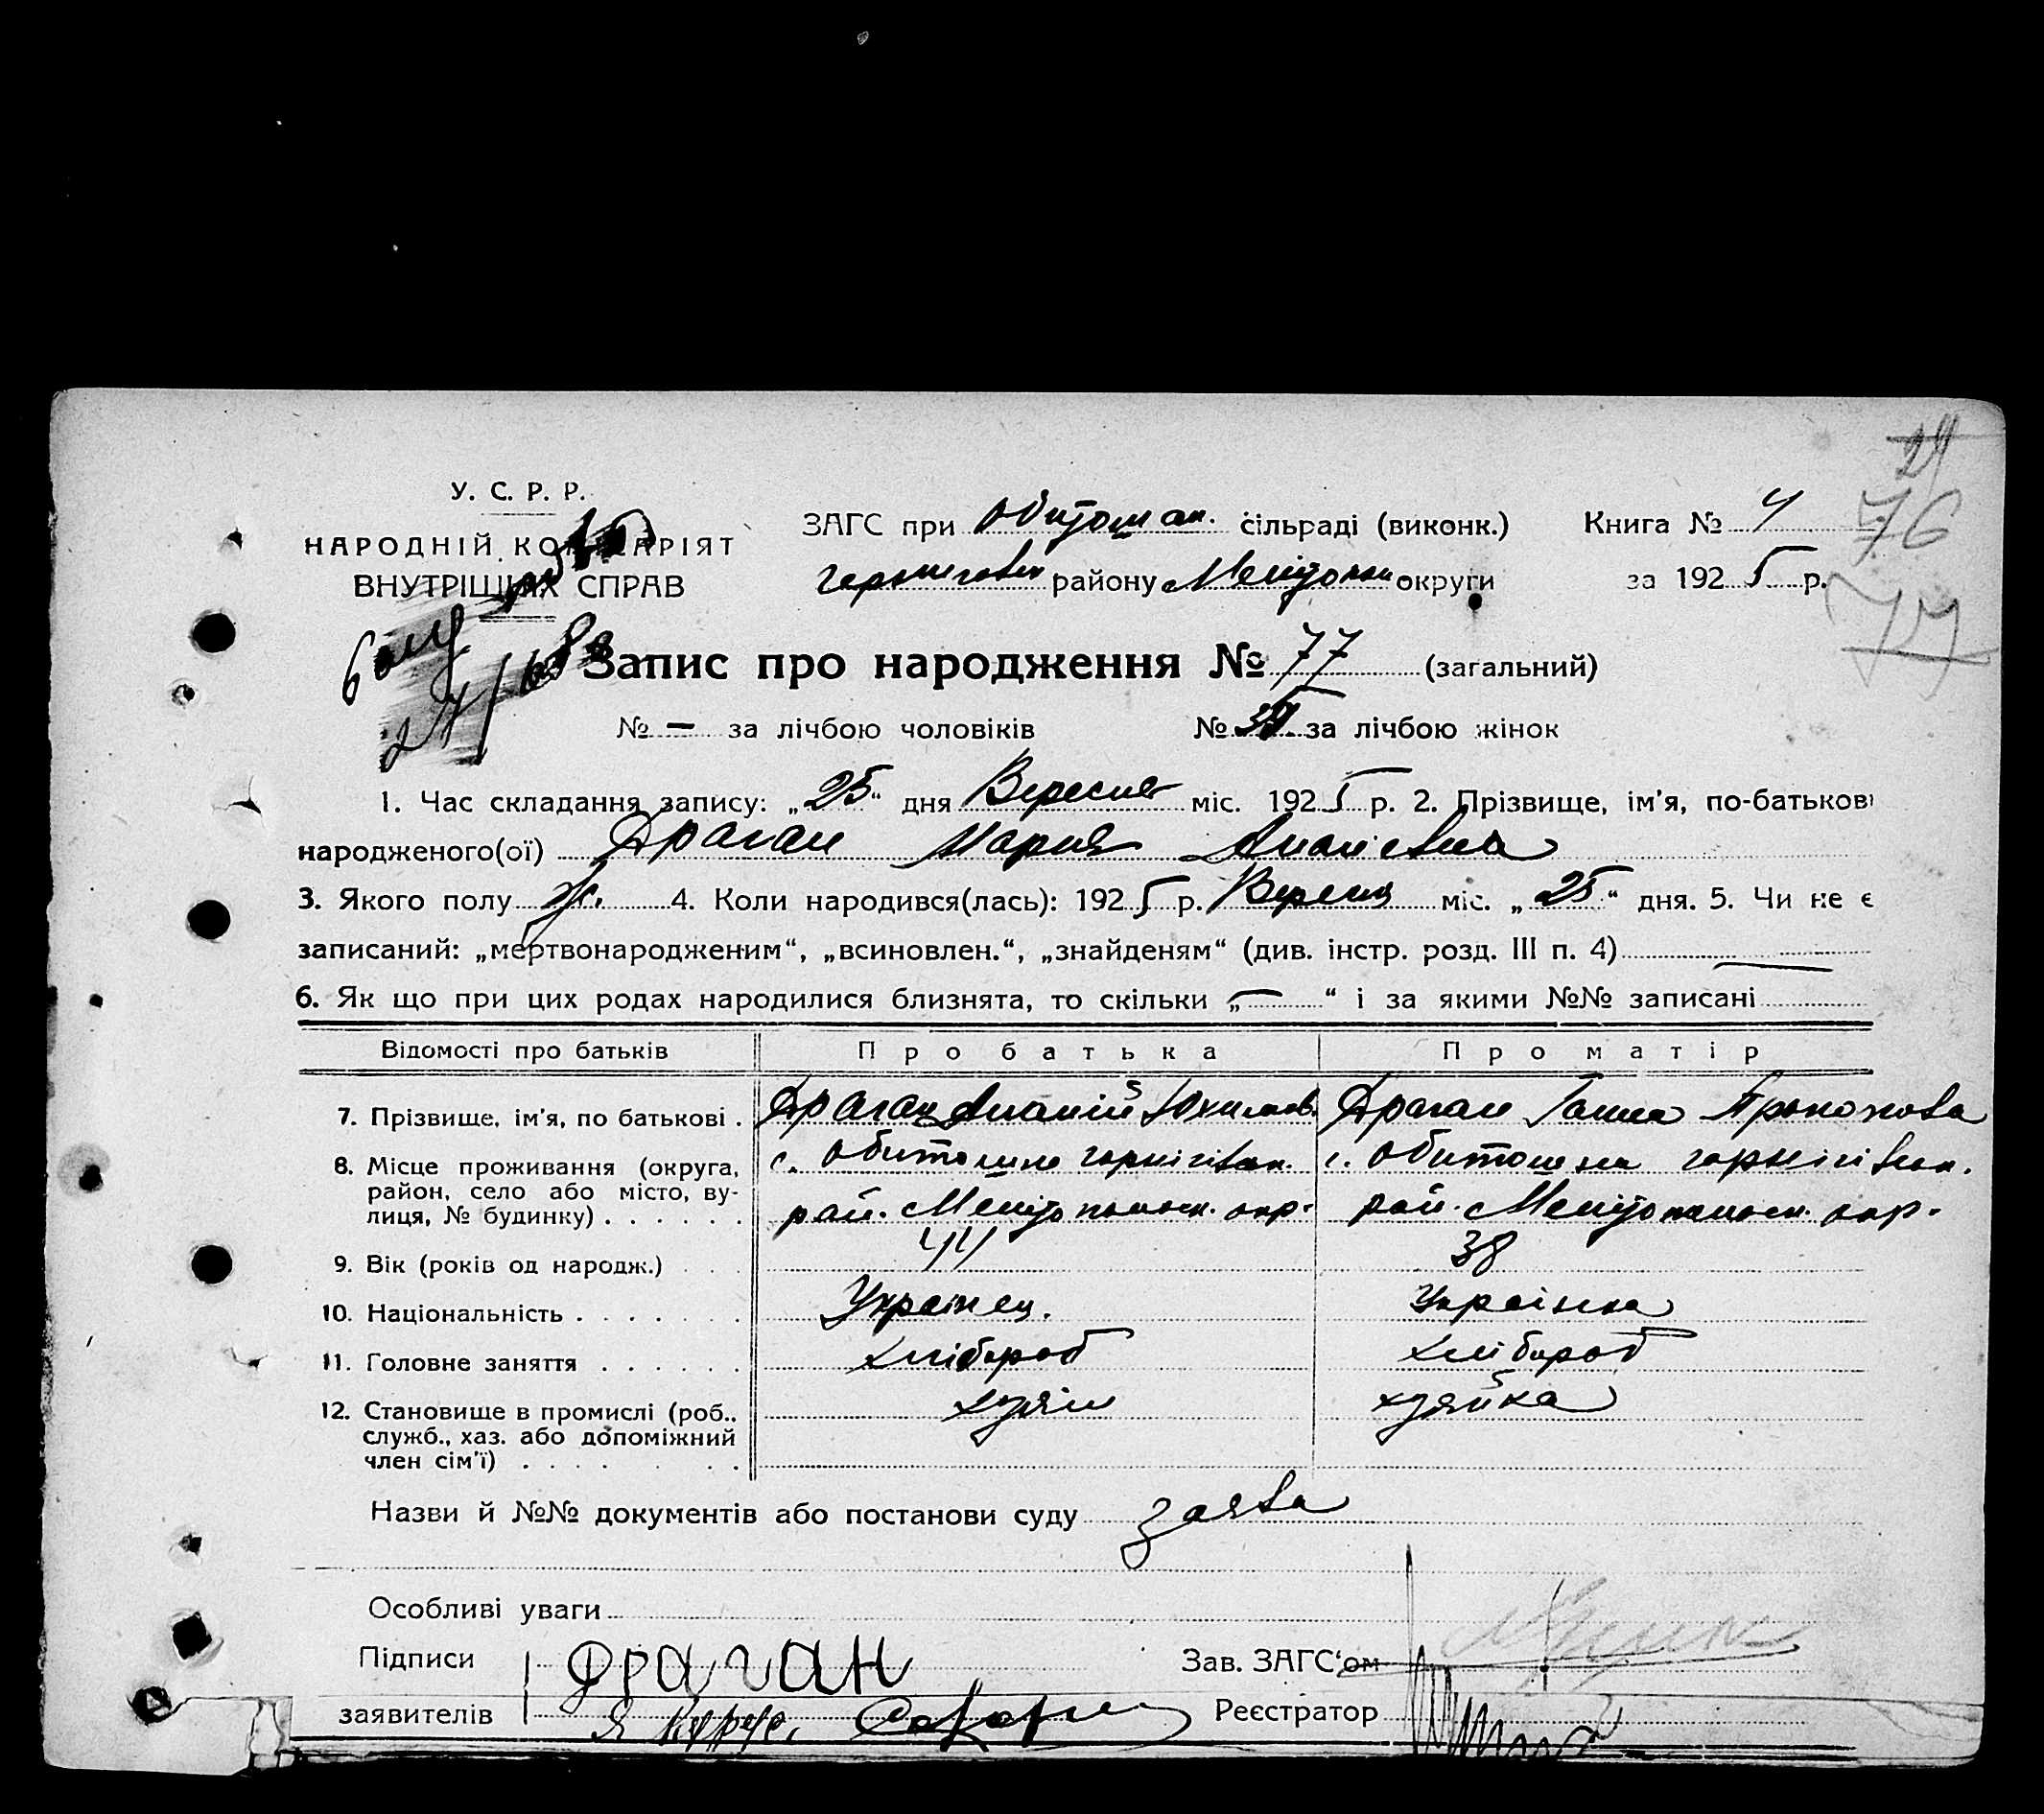 24
У. С. Р. Р.
НАРОДНІЙ КОМІСАРІЯТ
ВНУТРІШНІХ СПРАВ
ЗАГС при Обитошан. сільраді (виконк.) Книга № 4
76
району Мелітопол округи за 192 5 р.
77
Запис про народження № 77 (загальний)
№ — за лічбою чоловіків № за лічбою жінок
1. Час складання запису: „25“ дня Вересня міс. 192 5 р. 2. Прізвище, ім'я, по-батькові
народженого(ої) Драган Мария Ананієвна
3. Якого полу ж. 4. Коли народився(лась): 192 5 р. Вересня міс. „25“ дня. 5. Чи не є
записаний: „мертвонародженим“, „всиновлен.“, „знайденям“ (див. інстр. розд. III п. 4) —
6. Як що при цих родах народилися близнята, то скільки „—“ і за якими №№ записані
Відомості про батьків Про батька Про матір
7. Прізвище, ім'я, по батькові . Драган Ананій Юхимов. Драган Ганна Прокопова
8. Місце проживання (округа, с. Обиточне с. Обиточна
район, село або місто, ву-
лиця, № будинку) . . . . . . рай. Мелітопольск. окр. рай. Мелітопольск. окр.
9. Вік (років од народж.) . . . 44 38
10. Національність . . . . . . . Українец. Українка
11. Головне заняття . . . . . . хлібороб хлібороб
12. Становище в промислі (роб.. хзяїн хзяйка
служб., хаз. або допоміжний
член сім'ї) . . . . . . .
Назви й №№ документів або постанови суду заява
Особливі уваги
Підписи Драган Зав. ЗАГС'ом
заявителів Реєстратор